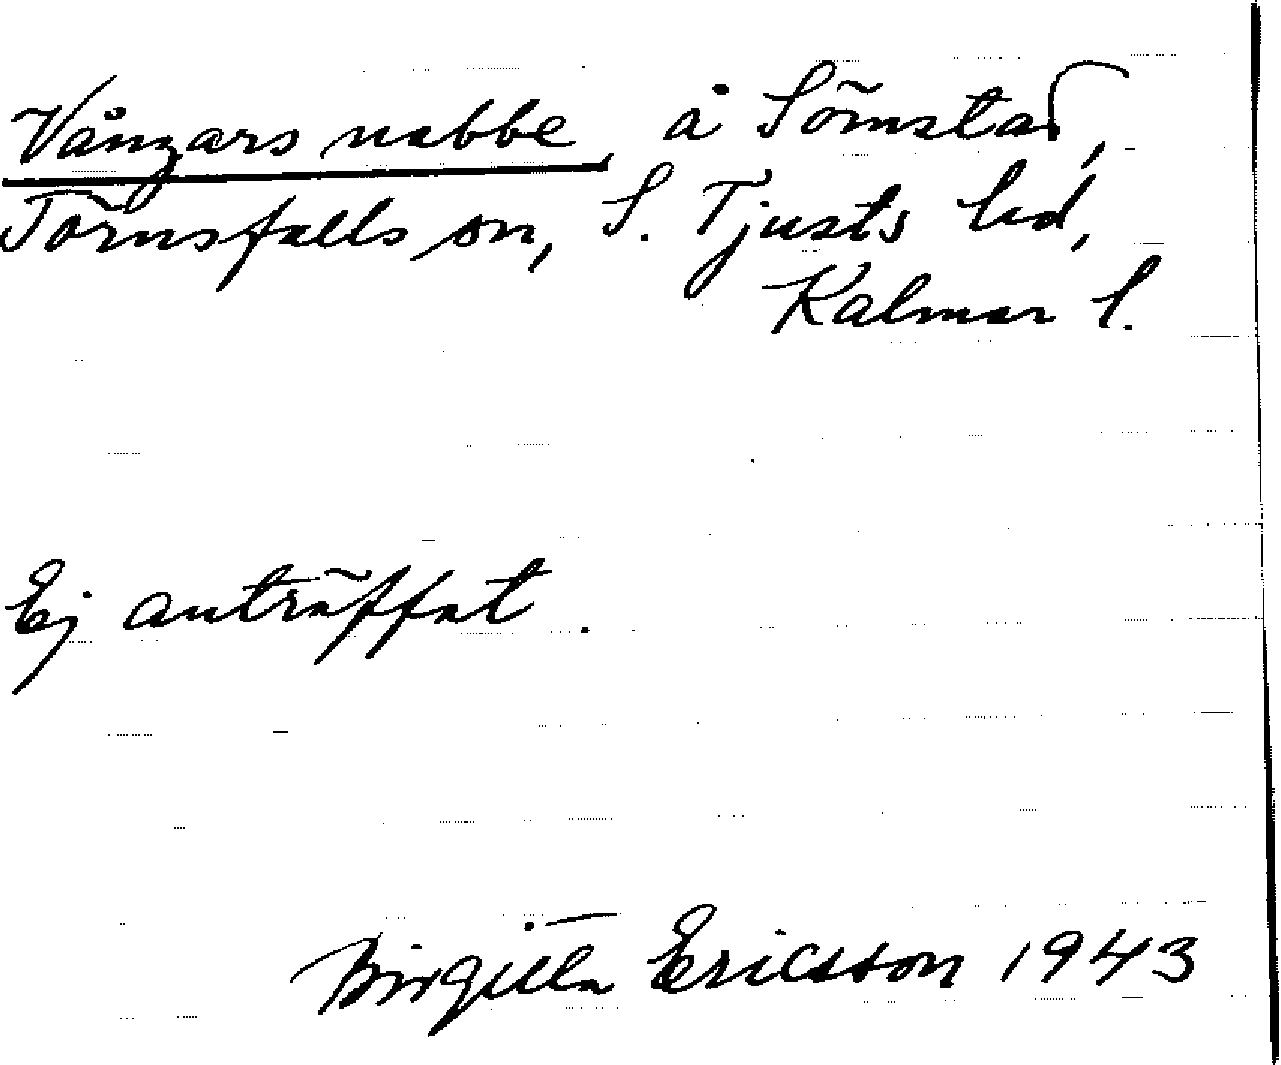 Vångars nabbe, å Sömstad,
Törnsfalls sn, S. Tjusts hd,
Kalmar l.
Ej anträffat.
Birgitta Ericsson 1943